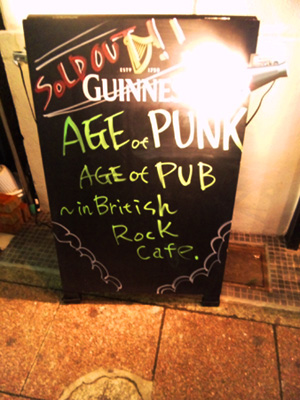 SOLD OUT!!
ESTD 1759
GUINNESS
AGE of PUNK
AGE of PUB
~in British
Rock
Cafe.